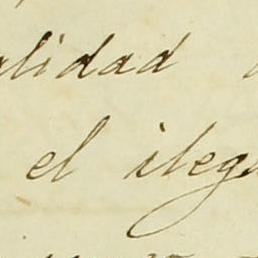 alidad
el ilega